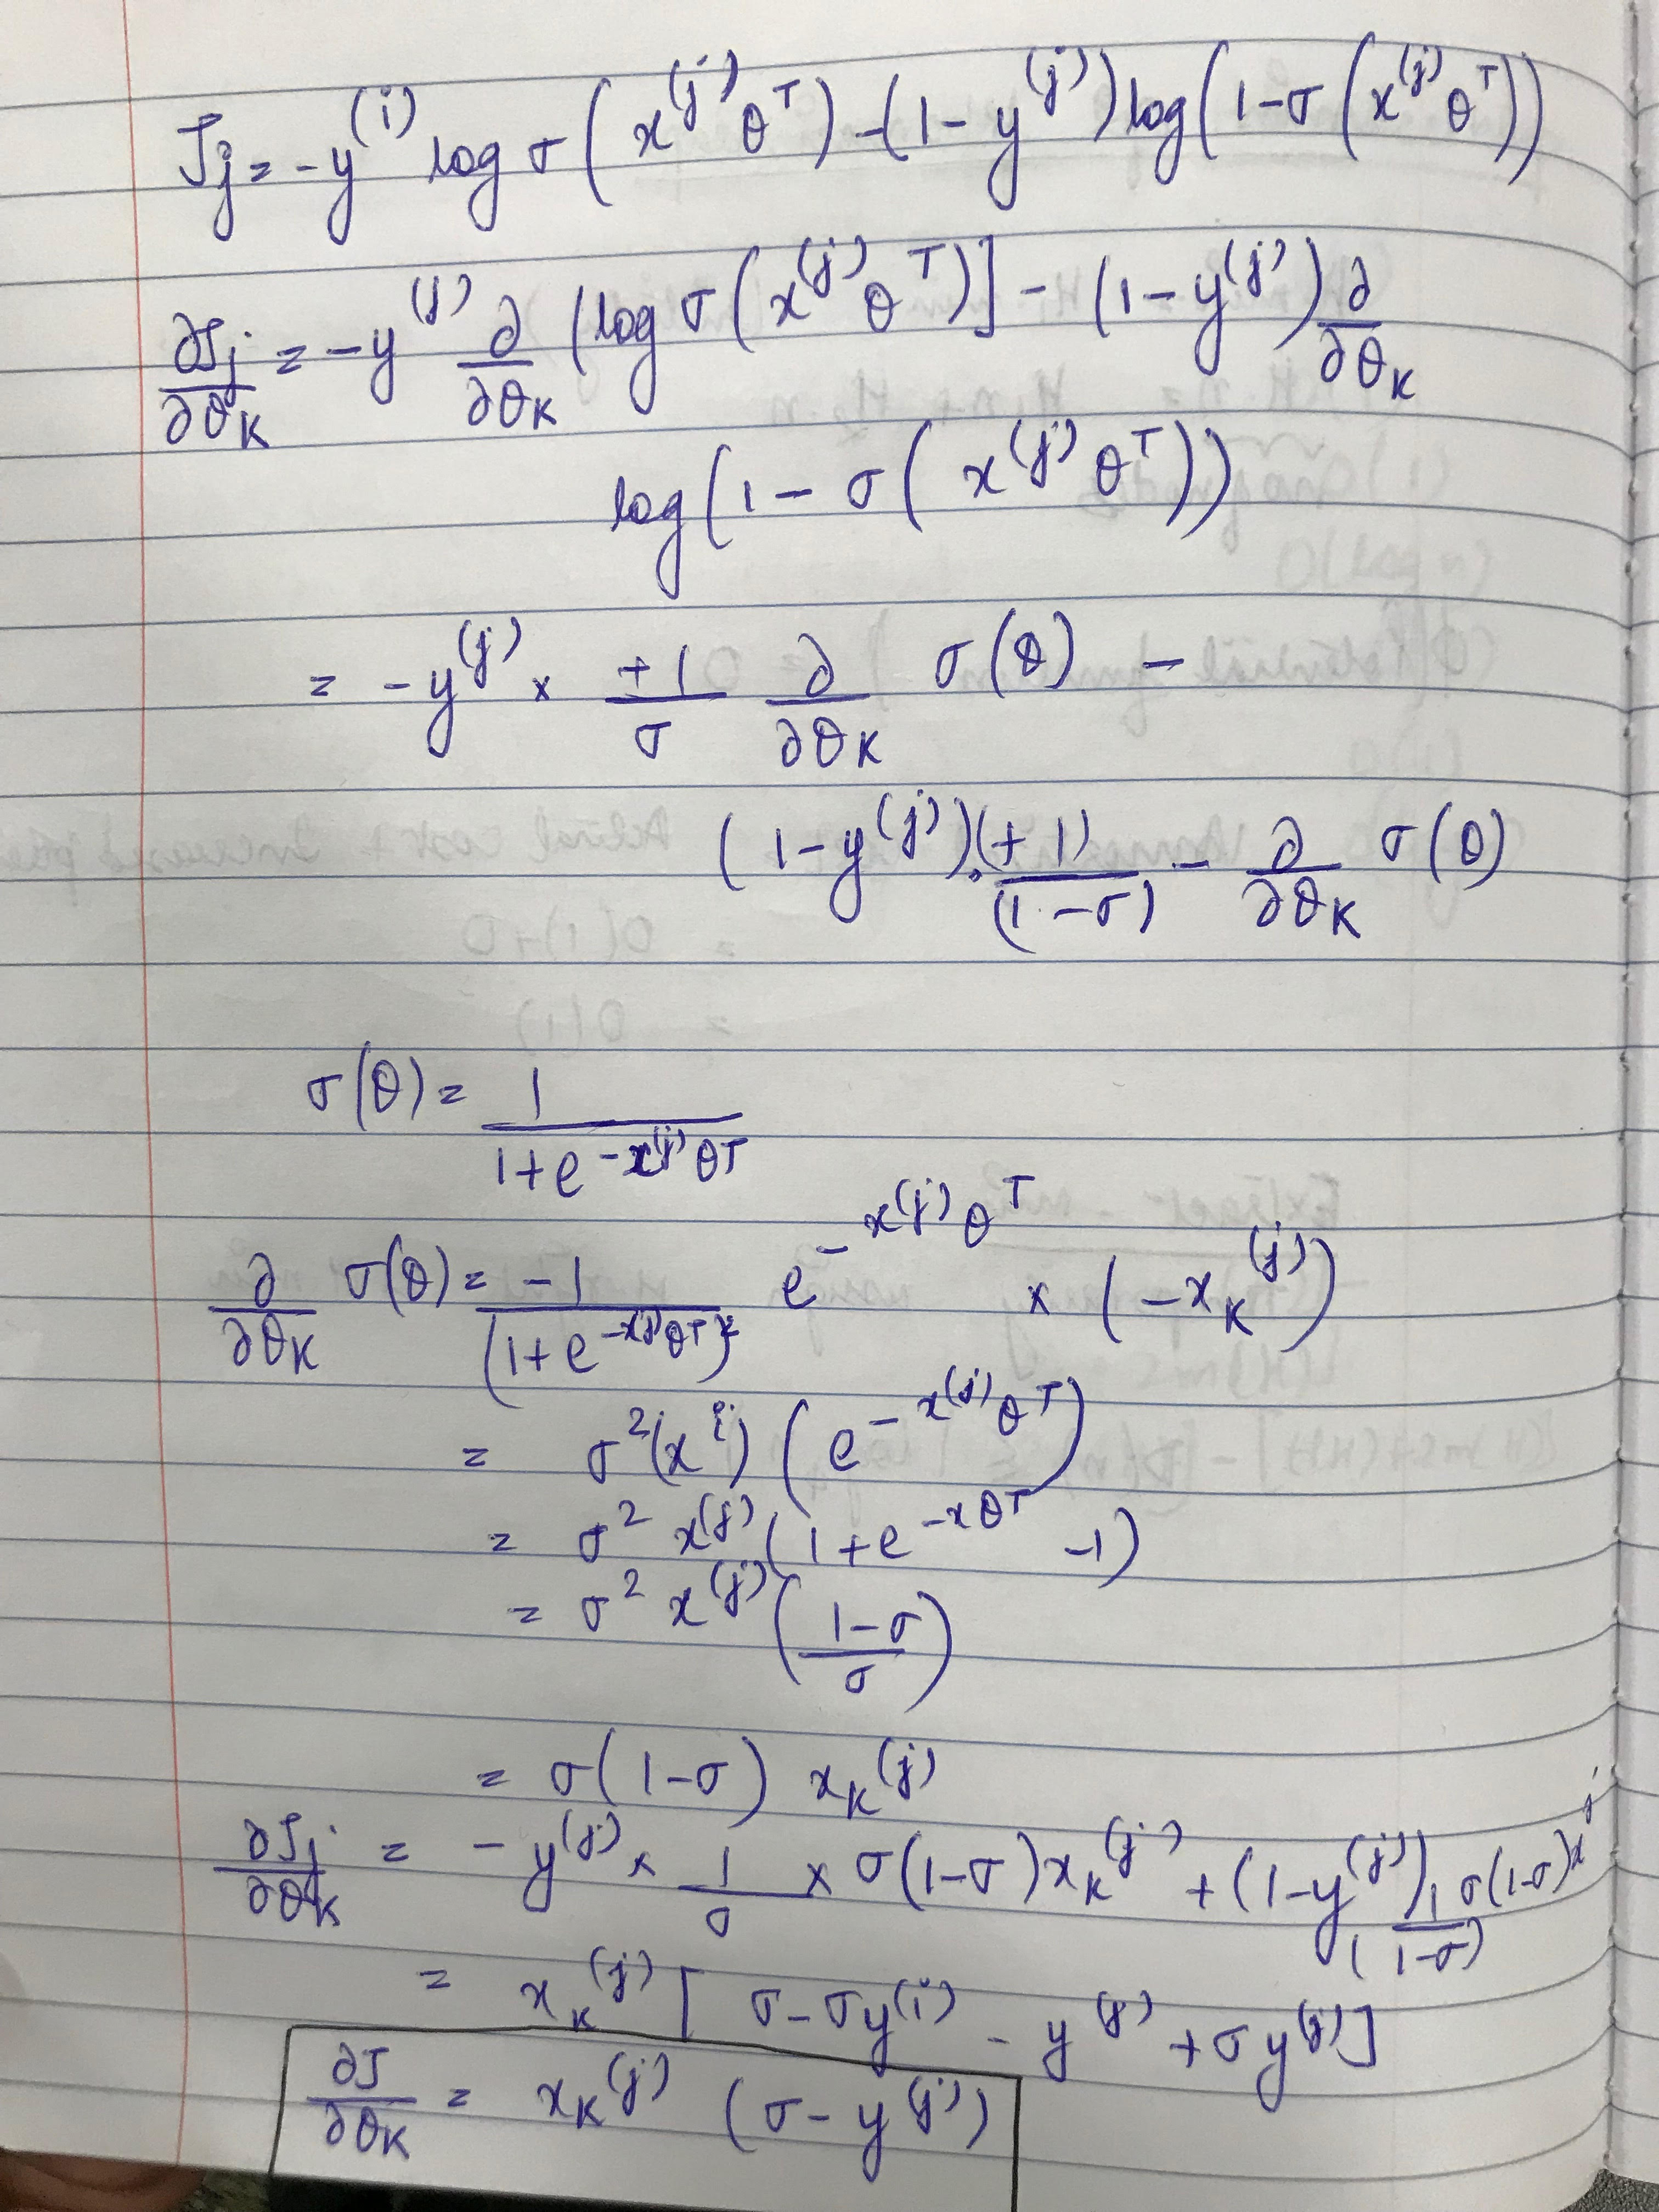 J_j = -y^(i) log σ(x^(j) θ^T) - (1 - y^(j)) log(1 - σ(x^(j) θ^T))
∂J_j/∂θ_K = -y^(j) ∂/∂θ_K (log σ(x^(j) θ^T)] - (1 - y^(j)) ∂/∂θ_K
log(1 - σ(x^(j) θ^T))
= -y^(j) × +1/σ ∂/∂θ_K σ(θ) -
(1 - y^(j)).(+1)/(1 - σ) - ∂/∂θ_K σ(θ)
σ(θ) = 1/(1 + e^(-x^(j) θ^T))
∂/∂θ_K σ(θ) = -1/(1 + e^(-x^(j) θ^T))^2 e^(-x^(j) θ^T) × (-x_K^(j))
= σ^2 (x^j) (e^(-x^(j) θ^T))
= σ^2 x^(j) (1 + e^(-xθ^T) - 1)
= σ^2 x^(j) ((1 - σ)/σ)
= σ(1 - σ) x_K^(j)
∂J_j/∂θ_K = -y^(j) × 1/σ × σ(1 - σ) x_K^(j) + (1 - y^(j)) 1/(1 - σ) σ(1 - σ) x^j
= x_K^(j) [σ - σy^(i) - y^(j) + σy^(j)]
∂J/∂θ_K = x_K^(j) (σ - y^(j))